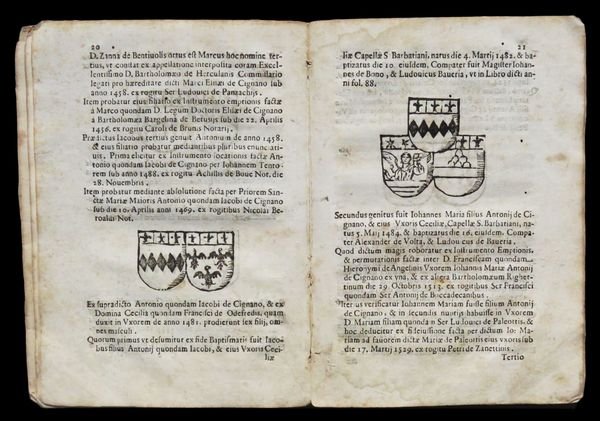 20
D. Zanna de Bentiuolis ortus est Marcus hoc nomine ter-
tius, vt constat ex appellatione interposita coram Excel-
lentissimo D. Bartholomæo de Herculanis Commissario
legati pro hæreditate dicti Marci Elisæi de Cignano sub
anno 1458. ex rogitu Ser Ludouici de Panzachijs.
Item probatur eius filiatio ex Instrumento emptionis factæ
à Marco quondam D. Legum Doctoris Elisæi de Cignano
à Bartholomæa Bargelina de Betusijs sub die 22. Aprilis
1456. ex rogitu Caroli de Bruns Notarij.
Prædictus Iacobus tertius genuit Antonium de anno 1458.
& eius filiatio probatur mediantibus pluribus enunciati-
uis. Prima elicitur ex instrumento locationis factæ An-
tonio quondam Iacobi de Cignano per Iohannem Tento-
rem sub anno 1488. ex rogitu Achillis de Boue Not. die
28. Nouembris.
Item probatur mediante absolutione facta per Priorem San-
ctæ Mariæ Maioris Antonio quondam Iacobi de Cignano
sub die 10. Aprilis anni 1469. ex rogitibus Nicolai Be-
roaldi Not.
Ex supradicto Antonio quondam Iacobi de Cignano, & ex
Domina Cecilia quondam Francisci de Odefredis, quam
duxit in Vxorem de anno 1481. prodierunt sex filij, om-
nes masculi.
Quorum primus vt desumitur ex fide Baptismatis fuit Iaco-
bus filius Antonij quondam Iacobi, & eius Vxoris Ceci-
liæ
21
liæ Capellæ S. Barbatiani, natus die 4. Martij 1482. & ba-
ptizatus die 10. eiusdem, Compater fuit Magister Iohan-
nes de Bono, & Ludouicus Baueria, vt in Libro dicti an-
ni fol. 88.
Secundus genitus fuit Iohannes Maria filius Antonij de Ci-
gnano, & eius Vxoris Ceciliæ, Capellæ S. Barbatiani, na-
tus 5. Maij 1484. & baptizatus die 16. eiusdem. Compa-
ter Alexander de Volta, & Ludouicus de Baueria.
Quod dictum magis roboratur ex Instrumento Emptionis,
& permutationis factæ inter D. Franciscam quondam
Hieronymi de Angelinis Vxorem Iohannis Mariæ Antonij
de Cignano ex vna, & ex alia Bartholomæum Righet-
tinum die 29. Octobris 1513. ex rogitibus Ser Francisci
quondam Ser Antonij de Boccadecanibus.
Iterus verificatur Iohannem Mariam fuisse filium Antonij
de Cignano, & in secundis nuptijs habuisse in Vxorem
D. Mariam filiam quondam Ser Ludouici de Paleottis, &
hoc deducitur ex fideiussione facta per dictum Io: Ma-
riam ad fauorem dictæ Mariæ de Paleottis eius vxoris sub
die 17. Martij 1529. ex rogitu Petri de Zanettinis.
Tertio